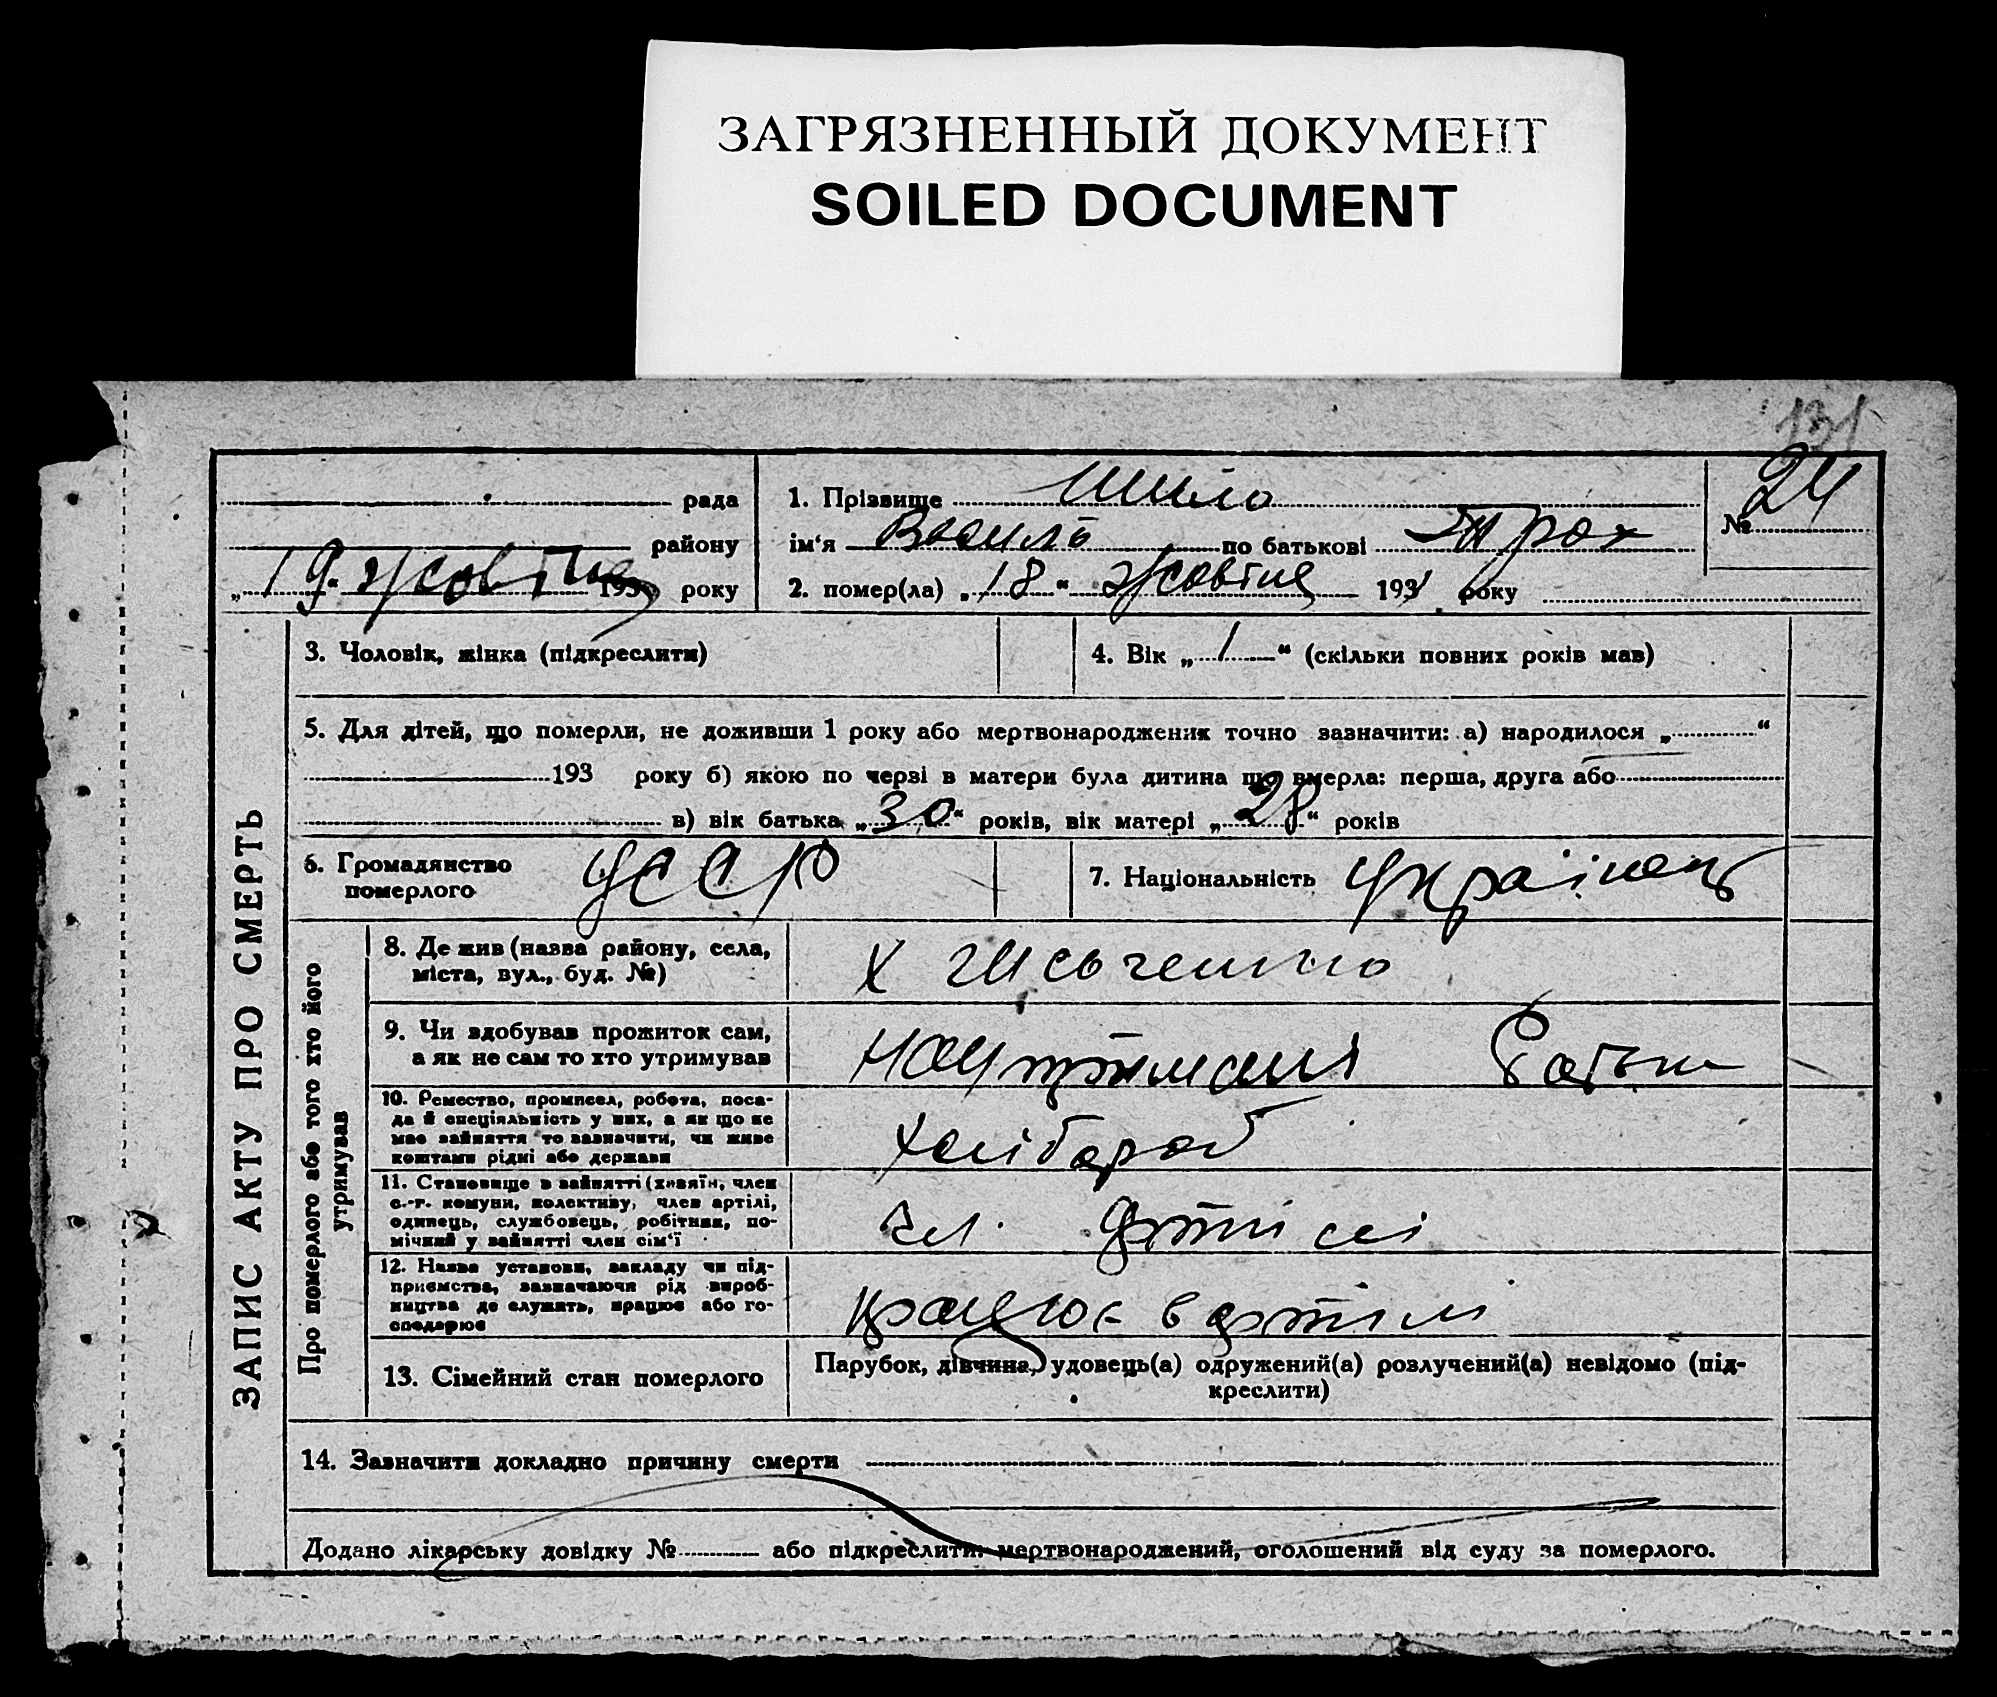 ЗАГРЯЗНЕННЫЙ ДОКУМЕНТ
SOILED DOCUMENT
131
рада
району
„19“ жовтня 193 року
1. Прізвище Шило
ім‘я Василь по батькові
2. помер(ла) „18“ жовтня 1931 року
№ 24
ЗАПИС АКТУ ПРО СМЕРТЬ
3. Чоловік, жінка (підкреслити)
4. Вік „1“ (скільки повних років мав)
5. Для дітей, що померли, не доживши 1 року або мертвонароджених точно зазначити: а) народилося „ “
193 року б) якою по черзі в матери була дитина що вмерла: перша, друга або
в) вік батька „30“ років, вік матері „28“ років
6. Громадянство
померлого
УССР
7. Національність Українець
Про померлого або того хто його
утримував
8. Де жив (назва району, села,
міста, вул., буд. №)
Х
9. Чи здобував прожиток сам,
а як не сам то хто утримував
10. Ремество, промисел, робота, поса-
да й спеціяльність у них, а як що не
має зайняття то зазначити, чи живе
коштами рідні або держави
Хлібороб
11. Становище в зайнятті (хазяїн, член
с.-г. комуни, колективу, член артілі,
одинець, службовець, робітник, по-
мічний у зайнятті член сім‘ї
чл. артілі
12. Назва установи, закладу чи під-
приємства, зазначаючи рід вироб-
ництва де служить, працює або го-
сподарює
працює в артілі
13. Сімейний стан померлого
Парубок, дівчина, удовець(а) одружений(а) розлучений(а) невідомо (під-
креслити)
14. Зазначити докладно причину смерти
Додано лікарську довідку № або підкреслити: мертвонароджений, оголошений від суду за померлого.